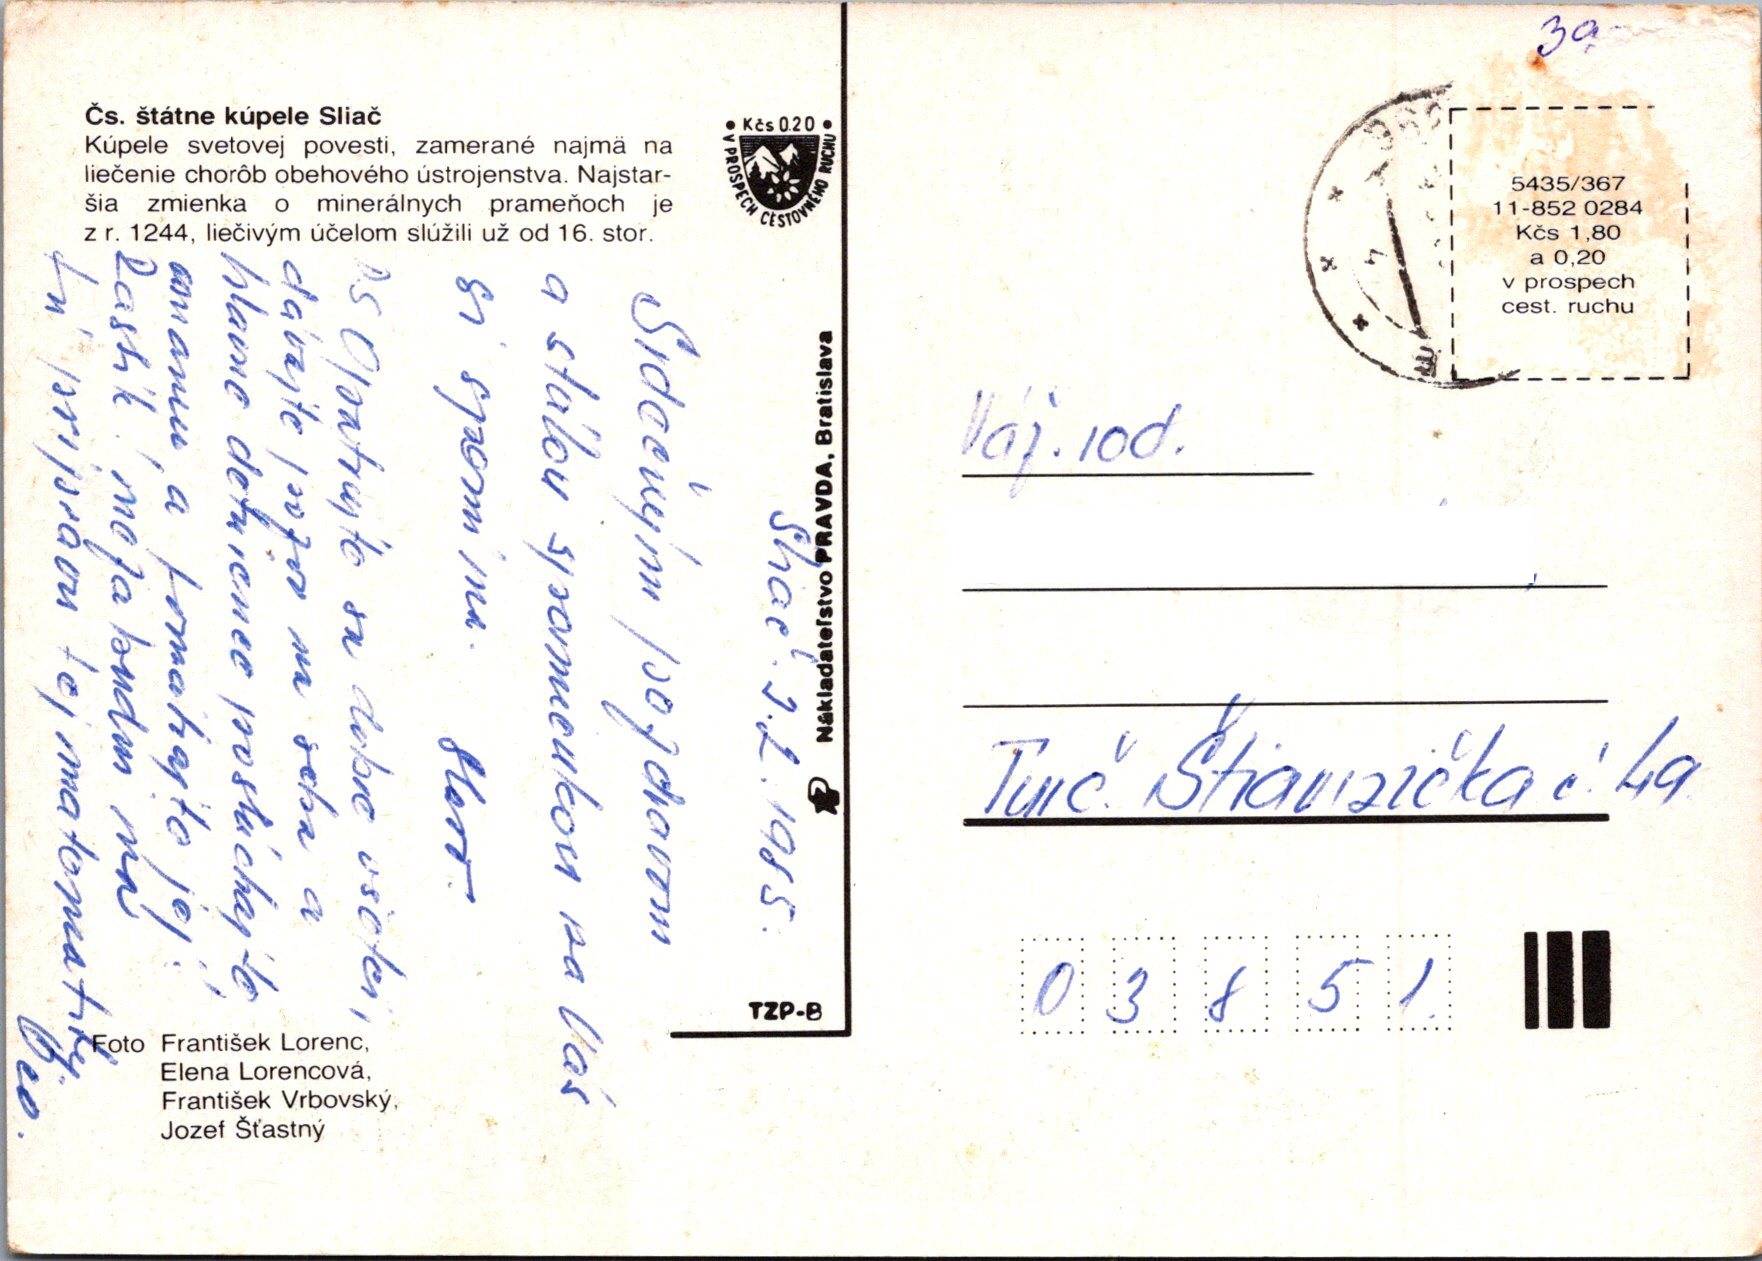 Čs. štátne kúpele Sliač
Kúpele svetovej povesti, zamerané najmä na
liečenie chorôb obehového ústrojenstva. Najstar-
šia zmienka o minerálnych prameňoch je
z r. 1244, liečivým účelom slúžili už od 16. stor.
• Kčs 0.20 •
V PROSPECH CESTOVNÉHO RUCHU
Sliač 2.2. 1985.
Srdečným pozdravom
a stálou spomienkou na Vás
si spomína.
PS Opatrujte sa dobre všetci,
dávajte pozor na seba a
hlavne poslúchajte
mamu a pomáhajte jej.
Foto František Lorenc,
Elena Lorencová,
František Vrbovský,
Jozef Šťastný
Nakladateľstvo PRAVDA, Bratislava
TZP-B
39
5435/367
11-852 0284
Kčs 1,80
a 0,20
v prospech
cest. ruchu
Váž. rod.
Turč. Štiavnička č. 49
03851